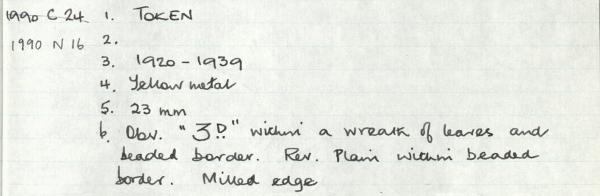 1990 C 24 1. TOKEN
1990 N 16 2.
3. 1920 - 1939
4. Yellow metal
5. 23 mm
6. Obv. "3D." within a wreath of leaves and
beaded border. Rev. Plain within beaded
border. Milled edge